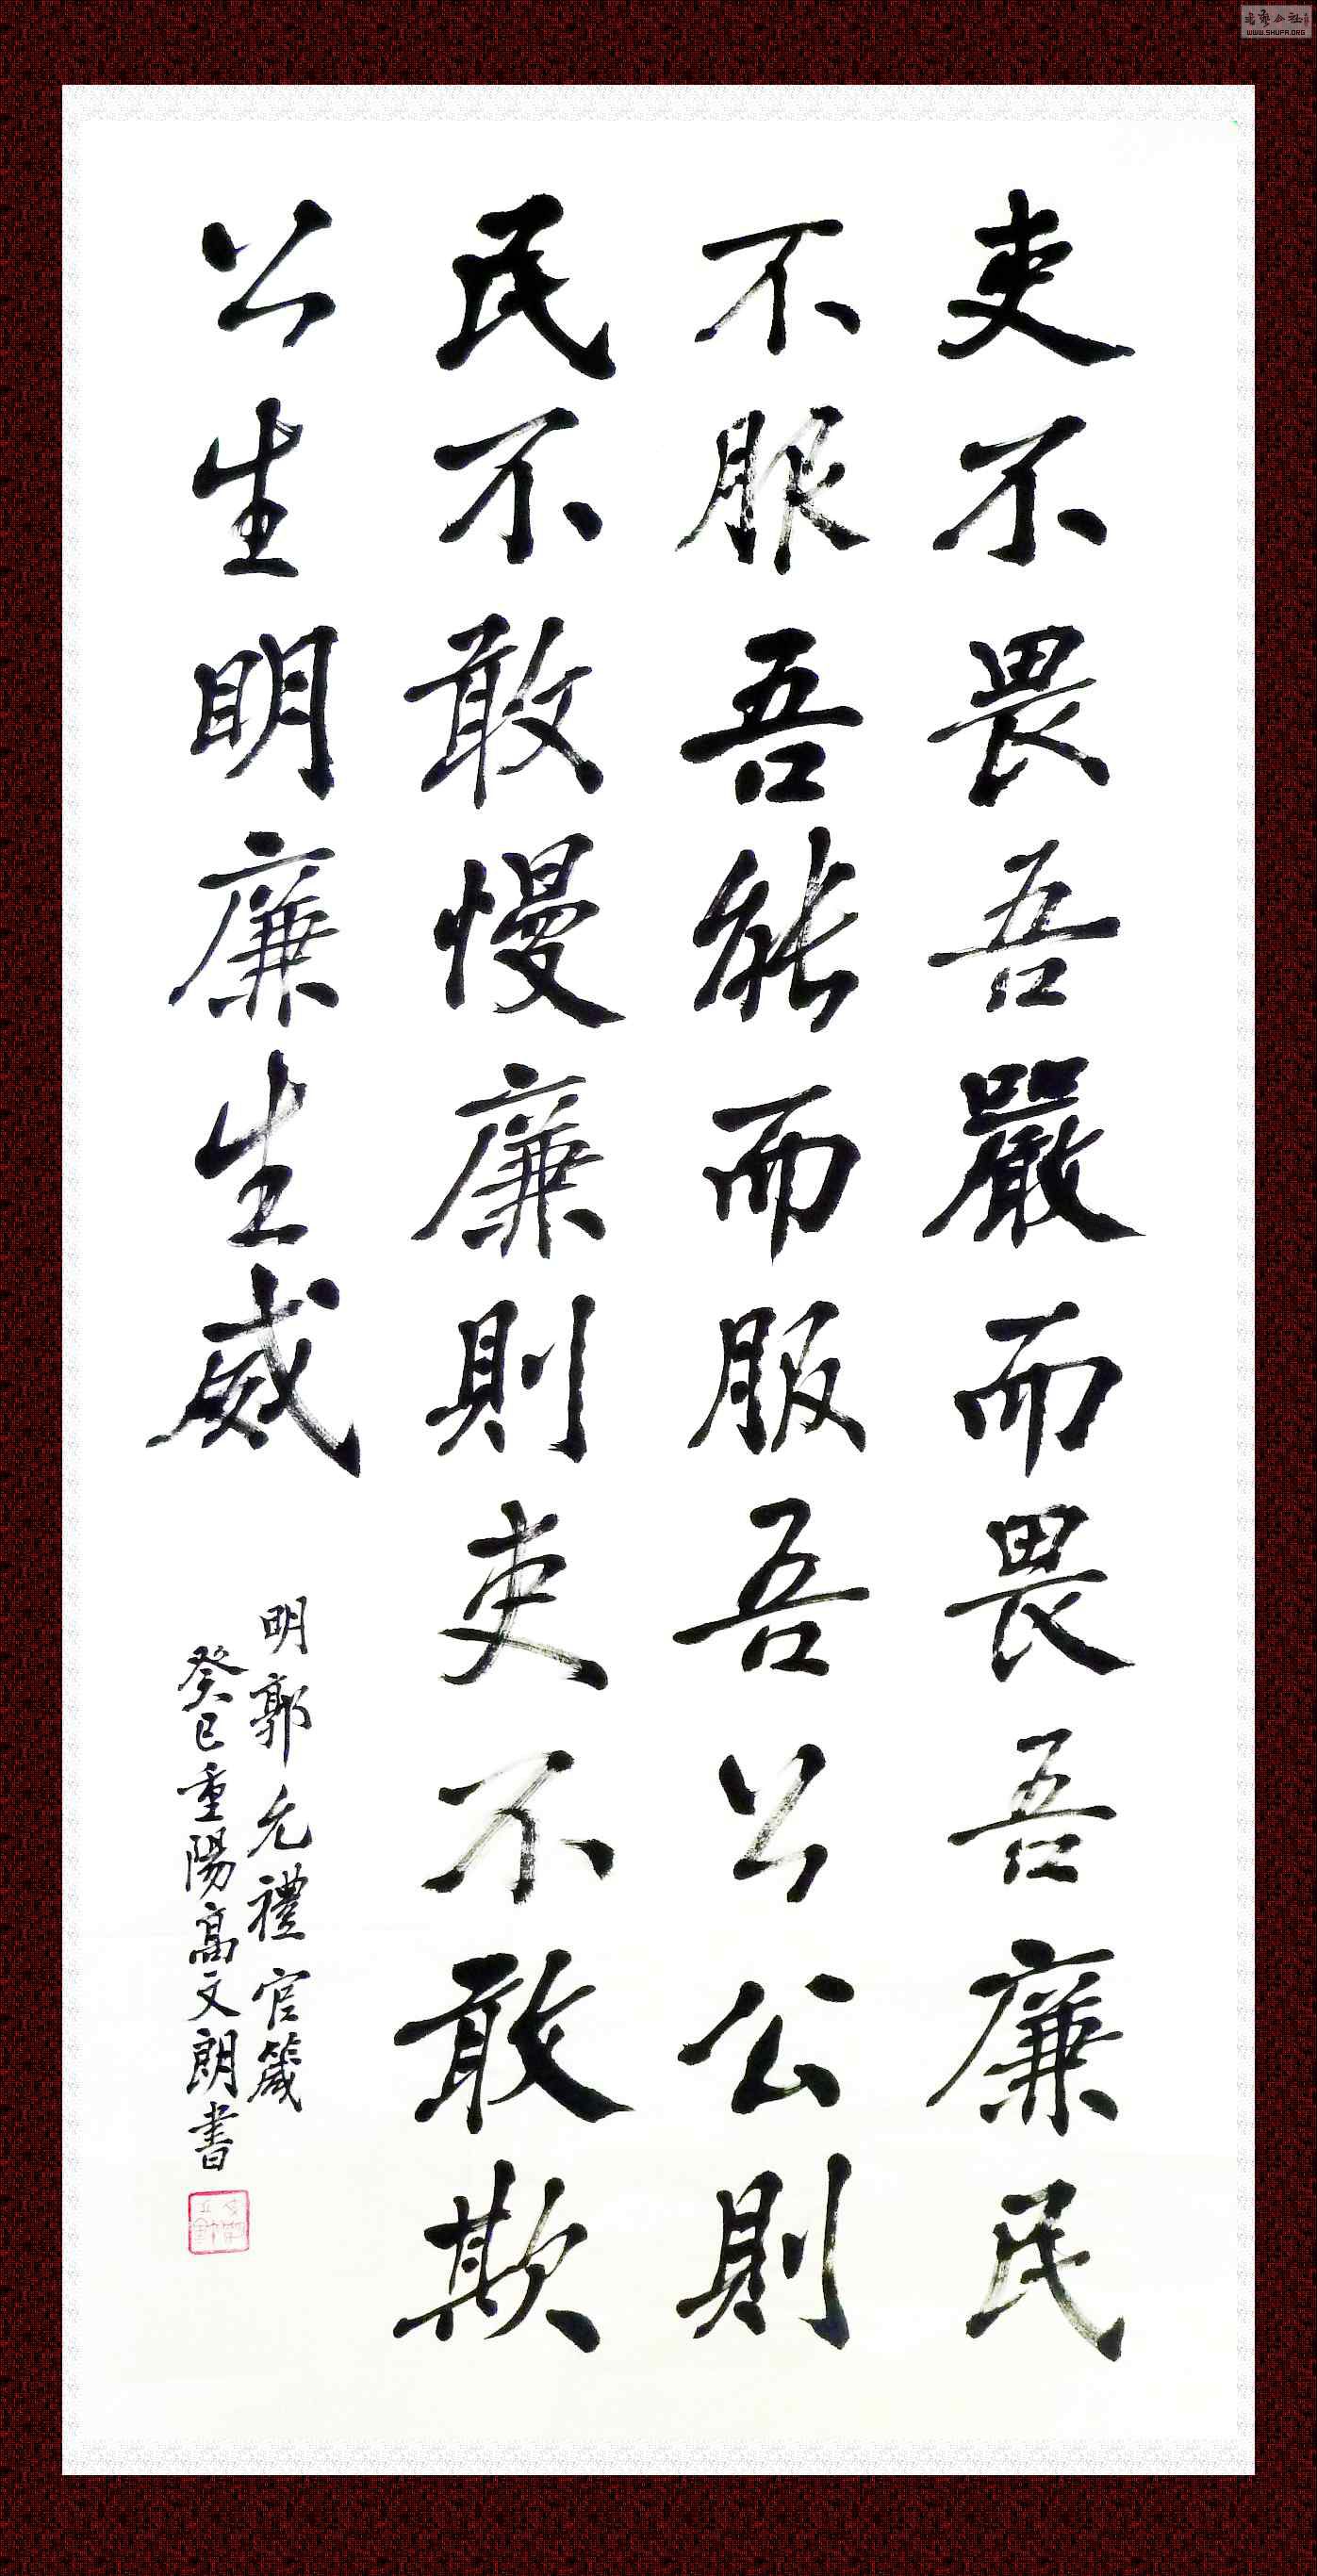 吏不畏吾嚴而畏吾廉民
不服吾能而服吾公公則
民不敢慢廉則吏不敢欺
公生明廉生威
明郭允禮官箴
癸巳重陽高文朗書
WWW.SHUFA.ORG